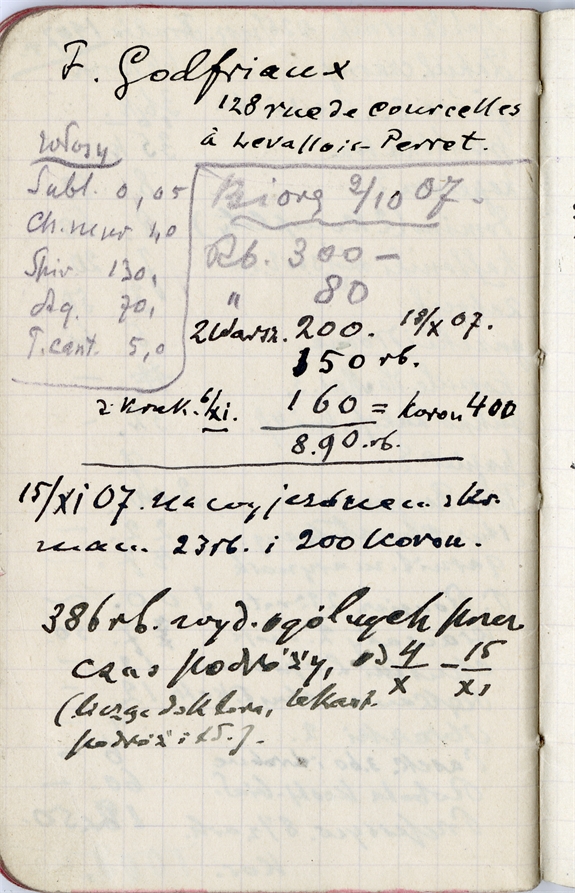 F. Godfriaux
128 rue de Courcelles
à Levallois-Perret.
Włosy
Subl. 0,05
Ch. mur 1,0
Spir. 130,
Aq. 70,
T. cant. 5,0
Biorę 2/10 07.
Rb. 300 –
" 80
z Warsz. 200. 19/X 07.
150 rb.
z Krak. 6/XI. 160 = koron 400
8.90. rb.
15/XI 07. Na wyjezdnem z Kr.
mam 23 rb. i 200 koron.
386 rb. wyd. ogólnych przez
czas podróży, od 4/X – 15/XI
(licząc doktora, lekarst.
podróż i t.d.).